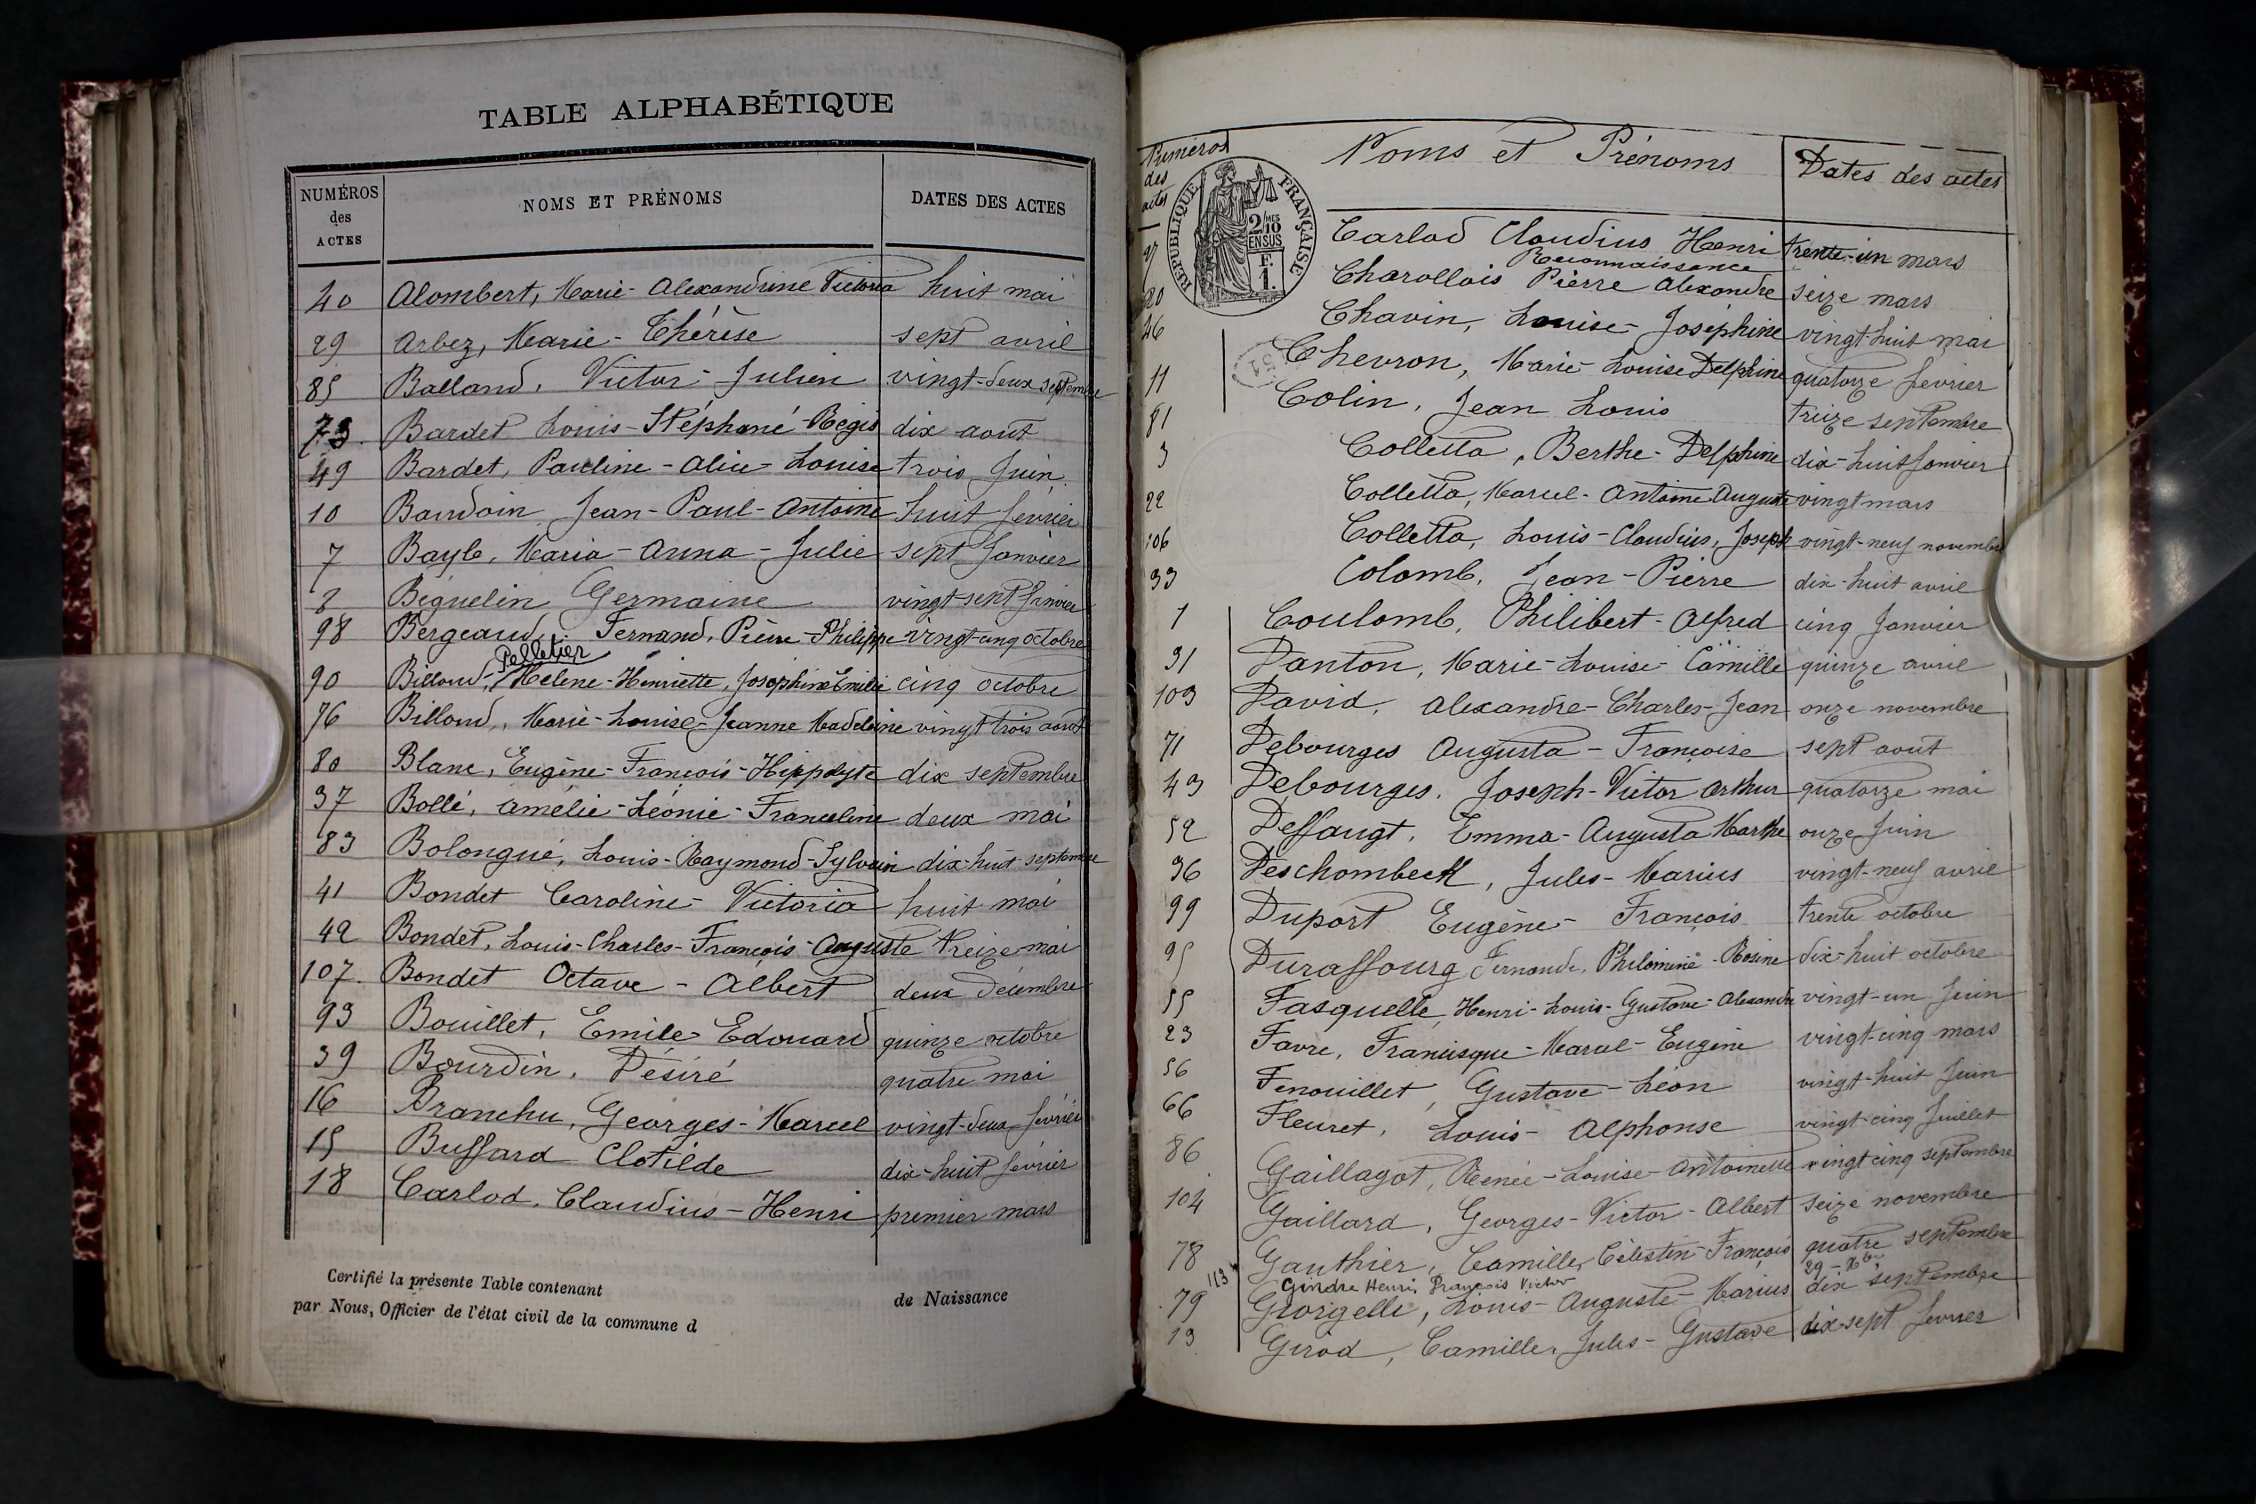 TABLE ALPHABÉTIQUE
NUMÉROS des ACTES NOMS ET PRÉNOMS DATES DES ACTES
40 Alombert, Marie-Alexandrine Victoria huit mai
29 Arbez, Marie-Thérèse sept avril
85 Balland, Victor-Julien vingt-deux septembre
73. Bardet Louis-Stéphané-Régis dix août
49 Bardet, Pauline-Alice-Louise trois Juin.
10 Baudoin Jean-Paul-Antoine huit février
7 Bayle, Maria-Anna-Julie sept Janvier
8 Béguelin Germaine vingt-sept Janvier
98 Bergeaud, Fernand, Pierre-Philippe vingt-cinq octobre
Pelletier
90 Billoud, Hélène-Henriette, Joséphine Emilie cinq octobre
76 Billoud, Marie-Louise-Jeanne Madeleine vingt trois août
80 Blanc, Eugène-François-Hippolyte dix septembre
37 Bollé, Amélie-Léonie-Franceline deux mai
83 Bolongué, Louis-Raymond-Sylvain dix-huit septembre
41 Bondet Caroline-Victoria huit mai
42 Bondet, Louis-Charles-François-Auguste treize mai
107. Bondet Octave-Albert deux décembre
93 Bouillet, Emile-Edouard quinze octobre
39 Bourdin, Désiré quatre mai
16 Branchu, Georges-Marcel vingt-deux février
15 Buffard Clotilde dix-huit février
18 Carlod, Claudius-Henri premier mars
Certifié la présente Table contenant de Naissance
par Nous, Officier de l'état civil de la commune d
Numéros des actes Noms et Prénoms Dates des actes
RÉPUBLIQUE FRANÇAISE
2/10 EN SUS
F. 1.
Carlod Claudius Henri trente-un mars
Reconnaissance
Charollais Pierre Alexandre seize mars
46 Chavin, Louise-Joséphine vingt-huit mai
11 Chevron, Marie-Louise Delphine quatorze fevrier
81 Colin, Jean Louis treize septembre
3 Colletta, Berthe-Delphine dix-huit Janvier
22 Colletta, Marcel-Antoine Auguste vingt mars
106 Colletta, Louis-Claudius, Joseph vingt-neuf novembre
33 Colomb, Jean-Pierre dix-huit avril
1 Coulomb, Philibert-Alfred cinq Janvier
31 Danton, Marie-Louise-Camille quinze avril
103 David, Alexandre-Charles-Jean onze novembre
71 Debourges Augusta-Françoise sept août
43 Debourges, Joseph-Victor Arthur quatorze mai
52 Deffaugt, Emma-Augusta Marthe onze Juin
36 Deschombeck, Jules-Marius vingt-neuf avril
99 Duport Eugène-François trente octobre
95 Duraffourg Fernande, Philomine-Rosine dix-huit octobre
55 Fasquelle, Henri-Louis-Gustave-Alexandre vingt-un Juin
23 Favre, Francisque-Marcel-Eugène vingt-cinq mars
56 Fenouillet, Gustave-Léon vingt-huit Juin
66 Fleuret, Louis-Alphonse vingt-cinq Juillet
86 Gaillagot, Renée-Louise-Antoinette vingt cinq septembre
104 Gaillard, Georges-Victor-Albert seize novembre
78 Gauthier, Camille, Célestin-François quatre septembre
113 Gindre Henri, François Victor 29-Xbre
79 Georgelle, Louis-Auguste-Marius dix septembre
13 Girod, Camille, Jules-Gustave dix-sept fevrier